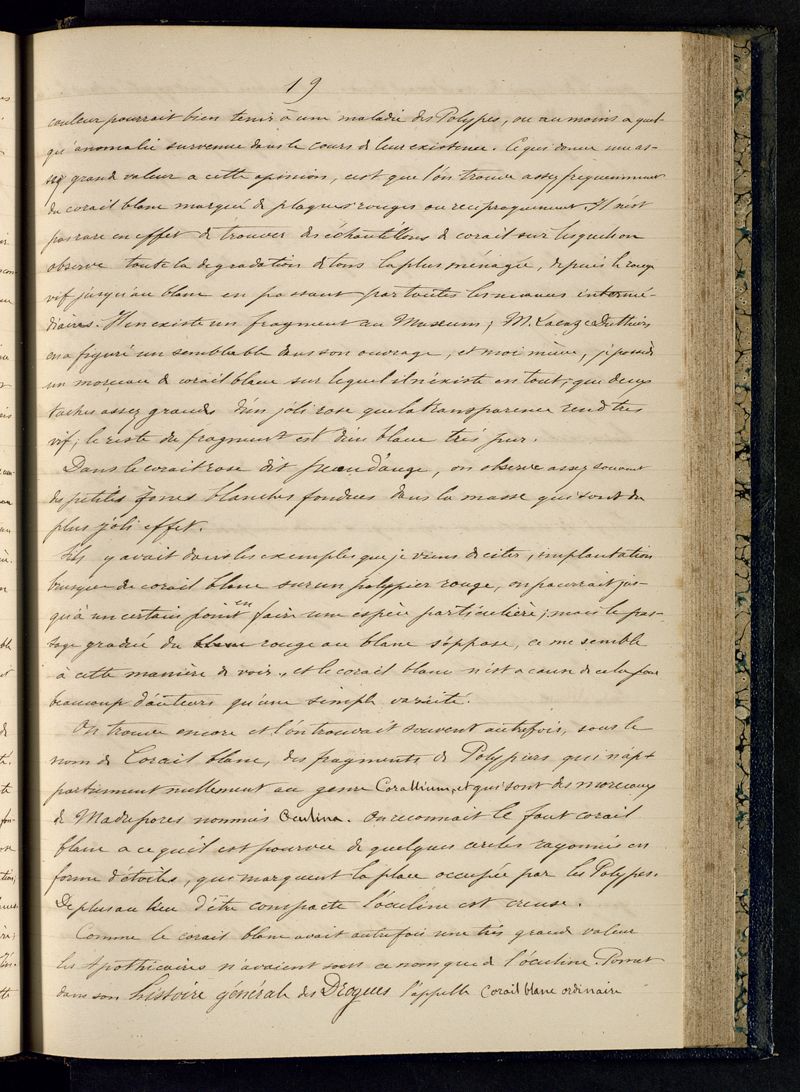 19
couleur pourrait bien tenir à une maladie des Polypes, ou au moins a quel-
qu'anomalie survenue dans le cours de leur existence. Ce qui donne une as-
sez grand valeur a cette opinion, c'est que l'on trouve assez frequemment
du corail blanc marqué de plaques rouges ou reciproquement. Il n'est
pas rare en effet de trouver des échantillons de corail sur lesquels on
observe toute la degradation de tons la plus ménagée, depuis le rouge
vif jusqu'au blanc en passant par toutes les nuances intermé-
diaires. Il en existe un fragment au Museum; M. Lacaze Duthiers
en a figuré un semblable dans son ouvrage, et moi même, je possède
un morceau de corail blanc sur lequel il n'existe en tout, que deux
taches assez grandes d'un joli rose que la transparence rend très
vif; le reste du fragment est d'un blanc très pur.
Dans le corail rose dit peau d'ange, on observe assez souvent
des petites zones blanches fondues dans la masse qui sont du
plus joli effet.
S'il y avait dans les exemples que je viens de citer, implantation
brusque de corail blanc sur un polypier rouge, on pourrait jus-
qu'à un certain point en faire une espèce particulière; mais le pas-
sage gradué du rouge au blanc s'oppose, ce me semble
à cette manière de voir, et le corail blanc n'est a cause de cela pour
beaucoup d'auteurs qu'une simple varieté.
On trouve encore et l'on trouvait souvent autrefois, sous le
nom de Corail blanc, des fragments de Polypiers qui n'ap-
partiennent nullement au genre Corallium, et qui sont des morceaux
de Madrepores nommés Oculina. On reconnait le faux corail
blanc a ce qu'il est pourvu de quelques cercles rayonnés en
forme d'étoiles, qui marquent la place occupée par les Polypes.
De plus au lieu d'être compacte l'oculine est creuse.
Comme le corail blanc avait autrefois une très grand valeur
les Apothicaires n'avaient sous ce nom que de l'oculine. Pomet
dans son histoire générale des Drogues l'appelle Corail blanc ordinaire